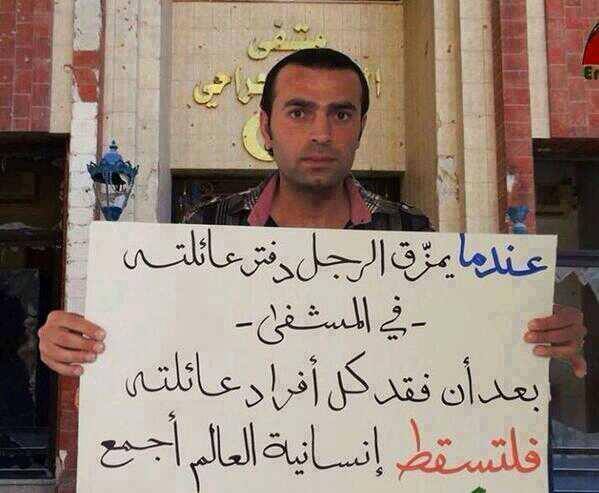 مشفى
عندما يمزّق الرجل دفتر عائلته
- في المشفى -
بعد أن فقد كل أفراد عائلته
فلتسقط إنسانية العالم أجمع